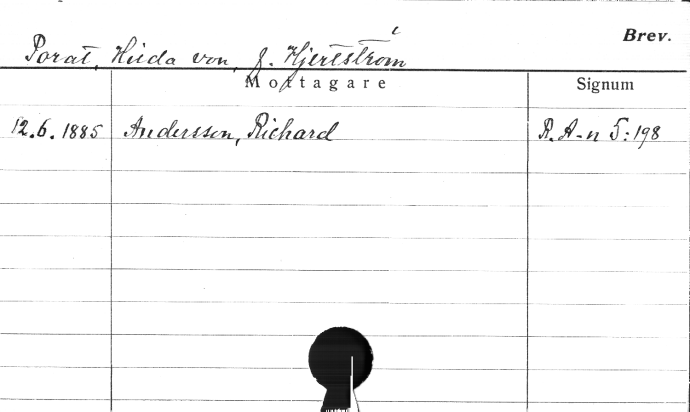 Brev.
Porat, Hilda von, f. Hjertström
Mottagare Signum
12.6.1885 Andersson, Richard R.A-n 5:198